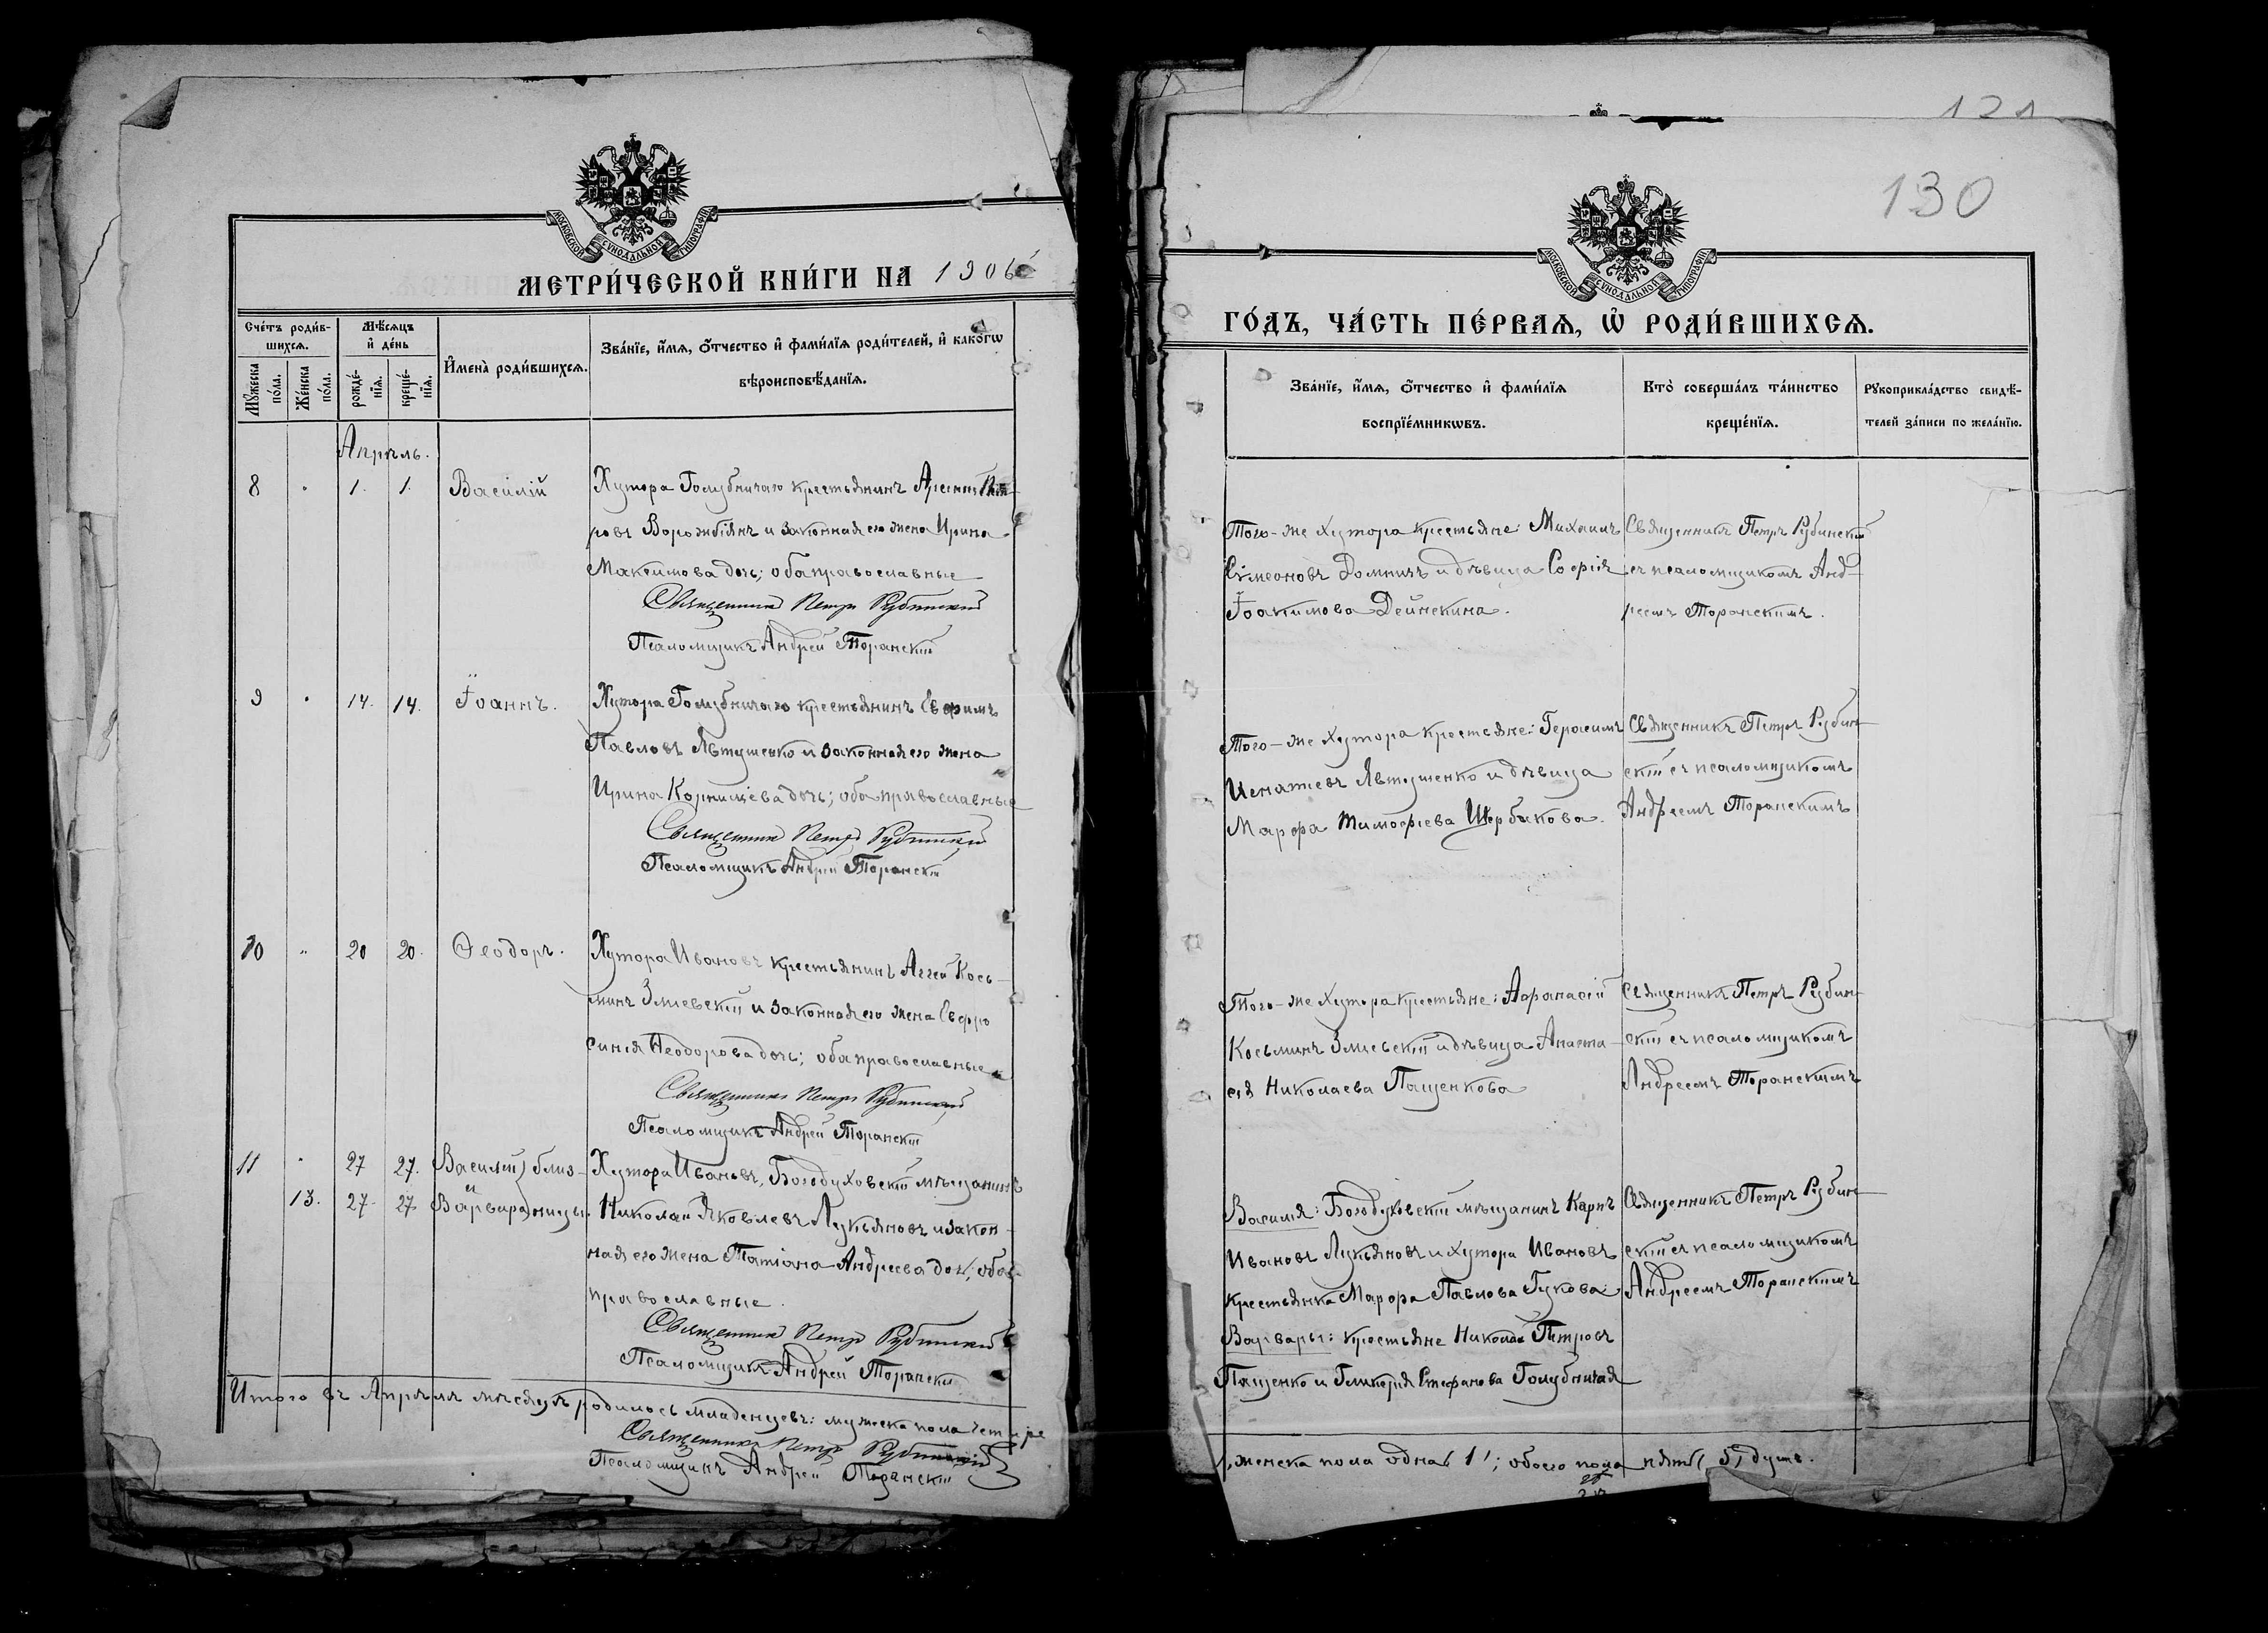 МОСКОВСКОЙ СУНОДАЛЬНОЙ ТУПОГРАФІИ
МЕТРИ́ЧЕСКОЙ КНИ́ГИ НА 1906
Сче́тъ роди́в-
шихсѧ.
Мꙋ́жеска по́ла.
Же́нска по́ла.
Мѣ́сѧцъ
и҆ де́нь
рожде́-
нїѧ.
креще́-
нїѧ.
И҆мена̀ роди́вшихсѧ.
Зва́нїе, и҆́мѧ, ѻ҆́тчество и҆ фами́лїѧ роди́телей, и҆ како́гѡ
вѣроисповѣ́данїѧ.
Апрѣль.
8 " 1. 1. Василій
Хутора Голубничаго крестьянинъ Арсеній Пет-
ровъ Ворожбіянъ и законная его жена Ирина
Максимова дочь; оба православные
Священникъ Петръ Рубинскій
Псаломщикъ Андрей Торанскій
9 " 14. 14. Іоаннъ.
Хутора Голубничаго крестьянинъ Евфимъ
Павловъ Явтушенко и законная его жена
Ирина Корниліева дочь; оба православные
Священникъ Петръ Рубинскій
Псаломщикъ Андрей Торанскій
10 " 20 20. Ѳеодоръ.
Хутора Ивановъ крестьянинъ Аггей Кось-
минъ Змиевскій и законная его жена Евфро
синія Ѳеодорова дочь; оба православные
Священникъ Петръ Рубинскій
Псаломщикъ Андрей Торанскій
11 " 27 27. Василій) близ-
и
13. 27. 27. Варвара) ницы.
Хутора Ивановъ, Богодуховскій мѣщанинъ
Николай Яковлевъ Лукьяновъ и закон-
ная его жена Татіана Андреева дочь; оба
православные.
Священникъ Петръ Рубинскій
Псаломщикъ Андрей Торанскій
Итого въ Апрѣлѣ мѣсяцѣ родилось младенцевъ: мужска пола четыре
Священникъ Петръ Рубинскій
Псаломщикъ Андрей Торанскій
121
130
МОСКОВСКОЙ СУНОДАЛЬНОЙ ТУПОГРАФІИ
ГО́ДЪ, ЧА́СТЬ ПЕ́РВАѦ, Ѡ҆ РОДИ́ВШИХСѦ.
Зва́нїе, и҆́мѧ, ѻ҆́тчество и҆ фами́лїѧ
воспрїе́мникѡвъ.
Кто̀ соверша́лъ та́инство
креще́нїѧ.
Рꙋкоприкла́дство свидѣ́-
телей за́писи по жела́нїю.
Того-же хутора крестьяне: Михаилъ
Симеоновъ Домнинъ и дѣвица Софія
Іоакимова Дейнекина.
Священникъ Петръ Рубинскій
съ псаломщикомъ Анд-
реемъ Торанскимъ.
Того-же хутора крестьяне: Герасимъ
Игнатіевъ Явтушенко и дѣвица
Марфа Тимофіева Щербакова.
Священникъ Петръ Рубин-
скій съ псаломщикомъ
Андреемъ Торанскимъ
Того-же хутора крестьяне: Афанасій
Косьминъ Змиевскій и дѣвица Анаста-
сія Николаева Пащенкова
Священникъ Петръ Рубин-
скій съ псаломщикомъ
Андреемъ Торанскимъ
Василія: Богодуховскій мѣщанинъ Карпъ
Ивановъ Лукьяновъ и хутора Ивановъ
крестьянка Марфа Павлова Гукова:
Варвары: крестьяне Николай Петровъ
Пащенко и Гликерія Стефанова Голубничая
Священникъ Петръ Рубин-
скій съ псаломщикомъ
Андреемъ Торанскимъ
женска пола одна (1); обоего пола пять (5) душъ.